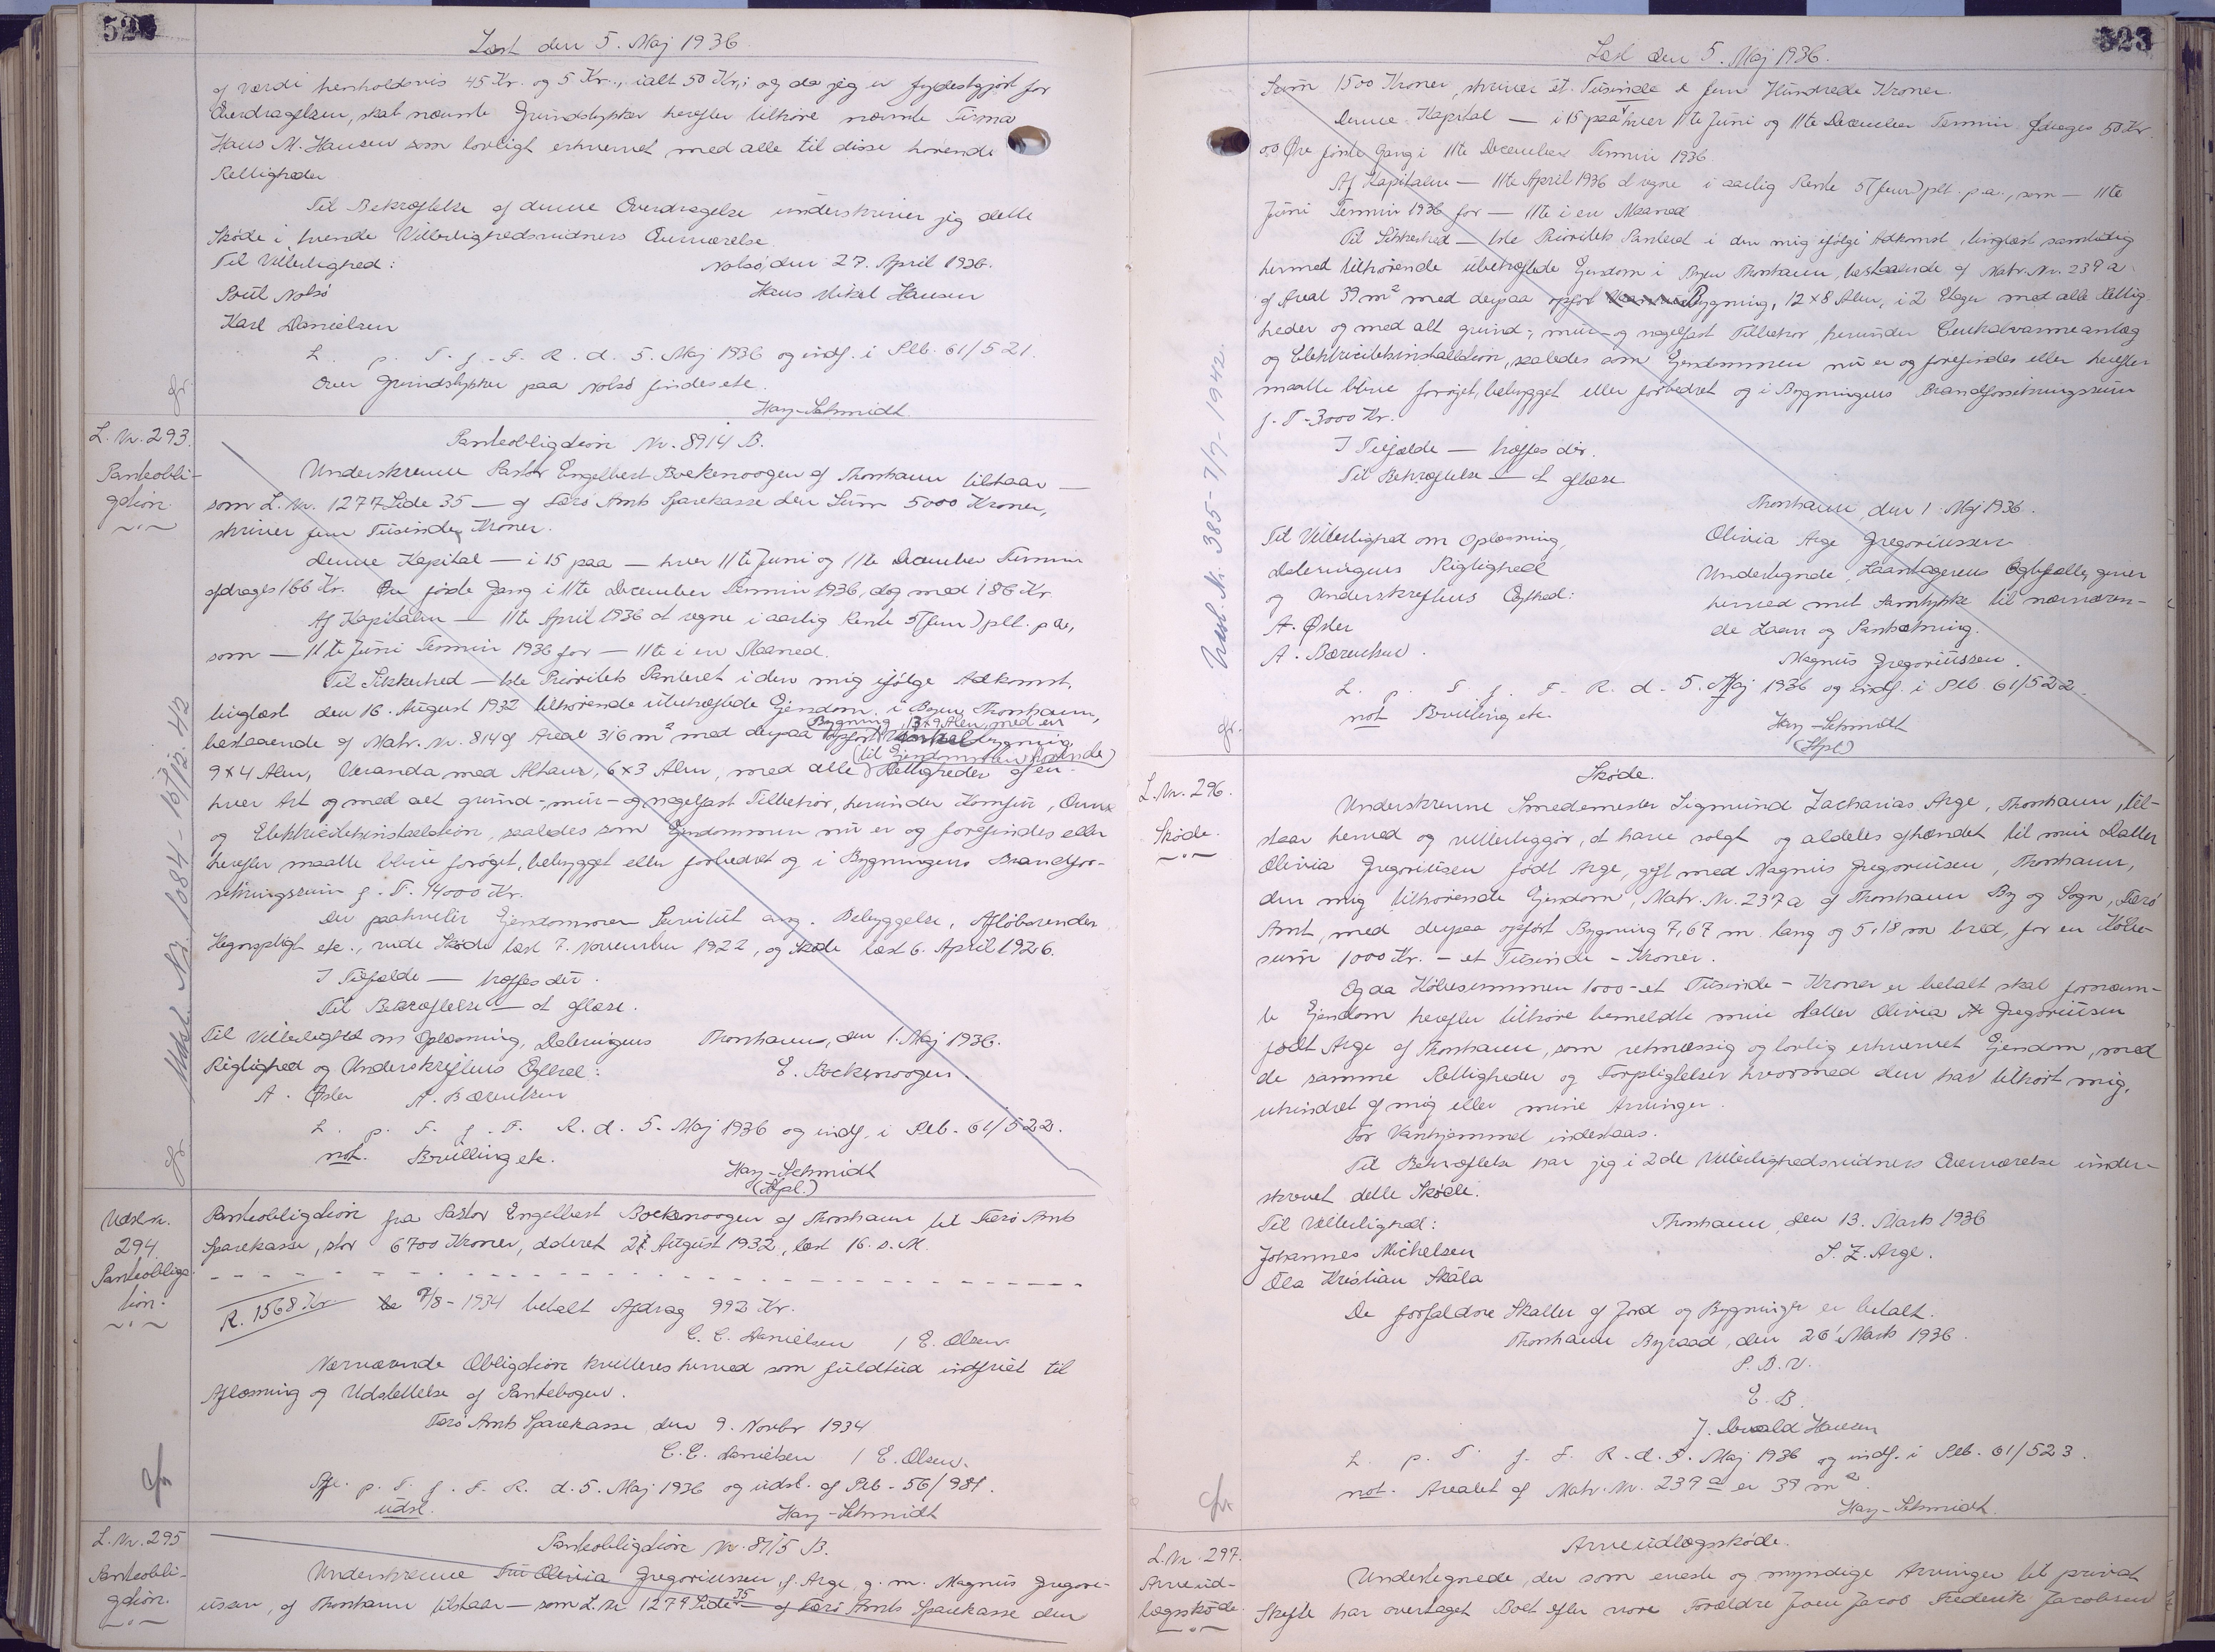 522
Læst den 5. Maj 1936
af Værdi henholdsvis 45 Kr. og 5 Kr., ialt 50 Kr., og da jeg er fyldestgjort for
Overdragelsen, skal nævnte Grundstykker herefter tilhøre nævnte Firma
Hans M. Hansen som lovligt erhvervet med alle til disse hørende
Rettigheder
Til Bekræftelse af denne Overdragelse underskriver jeg dette
Skøde i tvende Vitterlighedsvidners Overværelse
Til Vitterlighed: Nolsø, den 27. April 1936.
Poul Nolsø Hans Mikal Hansen
Karl Danielsen
L. p. T. f. F. R. d. 5. Maj 1936 og indf. i Ptb. 61/521.
Over Grundstykker paa Nolsø findes etc.
Hay-Schmidt
L. Nr. 293.
Panteobli-
gation
Panteobligation Nr. 8914 B.
Underskrevne Pastor Engelbert Boekenoogen af Thorshavn tilstaar —
som L. Nr. 1277 Side 35 — af Færø Amts Sparekasse den Sum 5000 Kroner,
skriver fem Tusinde Kroner.
Denne Kapital — i 15 paa — hver 11te Juni og 11te December Termin
afdrages 166 Kr. Øre første Gang i 11te December Termin 1936, dog med 186 Kr.
Af Kapitalen — 11te April 1936 at regne i aarlig Rente 5 (fem) pCt. p.a.,
som — 11te Juni Termin 1936 for — 11te i en Maaned.
Til Sikkerhed — 1ste Prioritets Panteret i den mig ifølge Adkomst,
tinglæst den 16. August 1932 tilhørende ubehæftede Ejendom i Byen Thorshavn,
Bygning, 13×9 Alen, med en
bestaaende af Matr. Nr. 814 af Areal 316 m² med derpaa opført bygning
(til Ejendommen hørende)
9×4 Alen, Veranda med Altan, 6×3 Alen, med alle Rettigheder af en-
hver Art og med alt grund-, mur- og nagelfast Tilbehør, herunder Komfur, Ovne
og Elektricitetsinstallation, saaledes som Ejendommen nu er og forefindes eller
herefter maatte blive forøget, bebygget eller forbedret og i Bygningens Brandfor-
sikringssum f. T. 14000 Kr.
Der paahviler Ejendommen Servitut ang. Bebyggelse, Afløbsrender
Hegnspligt etc., vide Skøde læst 7. November 1922, og Skøde læst 6. April 1926.
I Tilfælde — træffes dér.
Til Bekræftelse — at aflæse.
Til Vitterlighed om Oplæsning, Dateringens Thorshavn, den 1. Maj 1936.
Rigtighed og Underskriftens Ægthed: E. Boekenoogen
A. Øster A. Bærentsen
L. p. T. f. F. R. d. 5. Maj 1936 og indf. i Ptb. 61/522.
not. Brulling etc.
Hay-Schmidt
(Stpl.)
Udsl. Nr. 1084 - 15/12. 42
Udsl. n.
294.
Panteobliga
tion.
Panteobligation fra Pastor Engelbert Boekenoogen af Thorshavn til Færø Amts
Sparekasse, stor 6700 Kroner, dateret August 1932, læst 16. s. M.
R. 1568 Kr. 7/8-1934 betalt Afdrag 992 Kr.
C. C. Danielsen / E. Olsen
Nærværende Obligation kvitteres herved som fuldtud indfriet til
Aflæsning og Udslettelse af Pantebogen.
Færø Amts Sparekasse, den 9. Novbr 1934
C. C. Danielsen / E. Olsen.
Afl. p. T. f. F. R. d. 5. Maj 1936 og udsl. af Ptb. 56/981.
udsl. Hay-Schmidt
L. Nr. 295
Panteobli-
gation.
Panteobligation Nr. 8915 B.
Underskrevne Fru Olivia Gregoriussen, f. Arge, g. m. Magnus Gregori-
ussen, af Thorshavn tilstaar — som L. Nr. 1279 Side 35 — af Færø Amts Sparekasse den
523
Læst den 5. Maj 1936.
Sum 1500 Kroner, skriver et Tusinde & fem Hundrede Kroner.
Denne Kapital — i 15 paa hver 11te Juni og 11te December Termin afdrages 50 Kr.
00 Øre første Gang i 11te December Termin 1936.
Af Kapitalen — 11te April 1936 at regne i aarlig Rente 5 (fem) pCt. p.a., som — 11te
Juni Termin 1936 for — 11te i en Maaned
Til Sikkerhed — 1ste Prioritets Panteret i den mig ifølge Adkomst, tinglæst samtidig
hermed tilhørende ubehæftede Ejendom i Byen Thorshavn, bestaaende af Matr. Nr. 239 a
af Areal 39 m² med derpaa opført Bygning, 12×8 Alen, i 2 Etager med alle Rettig-
heder og med alt grund-, mur- og nagelfast Tilbehør, herunder Centralvarmeanlæg
og Elektricitetsinstallation, saaledes som Ejendommen nu er og forefindes eller herefter
maatte blive forøget, bebygget eller forbedret og i Bygningens Brandforsikringssum
f. T. 3000 Kr.
I Tilfælde — træffes dér.
Til Bekræftelse — at aflæse
Thorshavn, den 1. Maj 1936.
Til Vitterlighed om Oplæsning, Olivia Arge Gregoriussen
Dateringens Rigtighed Undertegnede, Laantagerens Ægtefælle, giver
og Underskriftens Ægthed: herved mit Samtykke til nærværen-
A. Øster de Laan og Pantsætning.
A. Bærentsen. Magnus Gregoriussen.
L. p. T. f. F. R. d. 5. Maj 1936 og indf. i Ptb. 61/522.
not. Brulling etc. Hay-Schmidt
(Stpl)
Udsl. Nr. 385 - 7/7-1942.
L. Nr. 296.
Skøde.
Skøde.
Underskrevne Smedemester Sigmund Zacharias Arge, Thorshavn, til-
staar herved og vitterliggør, at have solgt og aldeles afhændet til min Datter
Olivia Gregoriussen født Arge, gift med Magnus Gregoriussen, Thorshavn,
den mig tilhørende Ejendom, Matr. Nr. 237a af Thorshavn By og Sogn, Færø
Amt, med derpaa opført Bygning 7,67 m. lang og 5,18 m bred, for en Købe-
sum 1000 Kr. - et Tusinde - Kroner.
Og da Købesummen 1000 - et Tusinde - Kroner er betalt skal fornævn-
te Ejendom herefter tilhøre bemeldte min Datter Olivia Gregoriussen
født Arge af Thorshavn, som retmæssig og lovlig erhvervet Ejendom, med
de samme Rettigheder og Forpligtelser hvormed den har tilhørt mig,
uhindret af mig eller mine Arvinger.
For Vanhjemmel indestaas.
Til Bekræftelse har jeg i 2de Vitterlighedsvidners Overværelse under-
skrevet dette Skøde.
Til Vitterlighed: Thorshavn, den 13. Marts 1936
Johannes Michelsen S. Z. Arge.
Ola Kristian Skála
De forfaldne Skatter af Jord og Bygninger er betalt.
Thorshavn Byraad, den 26' Marts 1936.
P. B. V.
E. B.
J. Dewald Hansen
L. p. T. f. F. R. d. 5. Maj 1936 og indf. i Ptb. 61/523.
not. Arealet af Matr. Nr. 239 a er 39 m².
Hay-Schmidt.
L. Nr. 297.
Arveud-
lægsskøde
Arveudlægsskøde.
Undertegnede, der som eneste og myndige Arvinger til privat
Skifte har overtaget Boet efter vore Forældre Joen Jacob Frederik Jacobsen